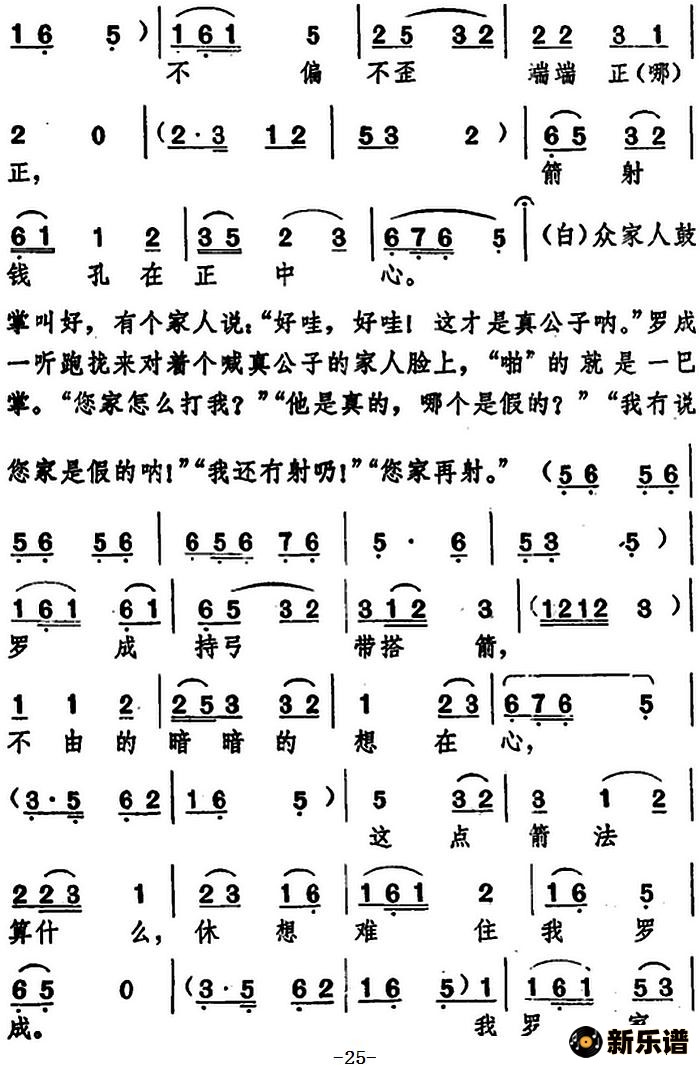 1 6 5 ) | 1 6 1 5 | 2 5 3 2 | 2 2 3 1 |
不 偏 不歪 端端 正(哪)
2 0 | (2·3 1 2 | 5 3 2 ) | 6 5 3 2 |
正, 箭 射
6 1 1 2 | 3 5 2 3 | 6 7 6 5 | (白)众家人鼓
钱 孔 在 正 中 心。
掌叫好,有个家人说:“好哇,好哇!这才是真公子呐。”罗成
一听跑找来对着个喊真公子的家人脸上,“啪”的就是一巴
掌。“您家怎么打我?”“他是真的,哪个是假的?”“我冇说
您家是假的呐!”“我还冇射吶!”“您家再射。” (5 6 5 6 |
5 6 5 6 | 6 5 6 7 6 | 5 · 6 | 5 3 5 ) |
1 6 1 6 1 | 6 5 3 2 | 3 1 2 3 | (1 2 1 2 3 ) |
罗 成 持弓 带搭 箭,
1 1 2 | 2 5 3 3 2 | 1 2 3 | 6 7 6 5 |
不 由 的 暗 暗 的 想 在 心,
(3·5 6 2 | 1 6 5 ) | 5 3 2 | 3 1 2 |
这 点 箭 法
2 2 3 1 | 2 3 1 6 | 1 6 1 2 | 1 6 5 |
算什 么, 休 想 难 住 我 罗
6 5 0 | (3·5 6 2 | 1 6 5 ) 1 | 1 6 1 5 3 |
成。 我 罗 家
新乐谱
-25-